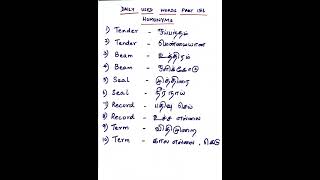 DAILY USED WORDS PART 186
HOMONYMS
1) Tender - ஒப்பந்தம்
2) Tender - மென்மையான
3) Beam - உத்திரம்
4) Beam - ஒளிக்கோடு
5) Seal - முத்திரை
6) Seal - நீர் நாய்
7) Record - பதிவு செய்
8) Record - உச்ச எல்லை
9) Term - விதிமுறை
10) Term - கால எல்லை, கெடு